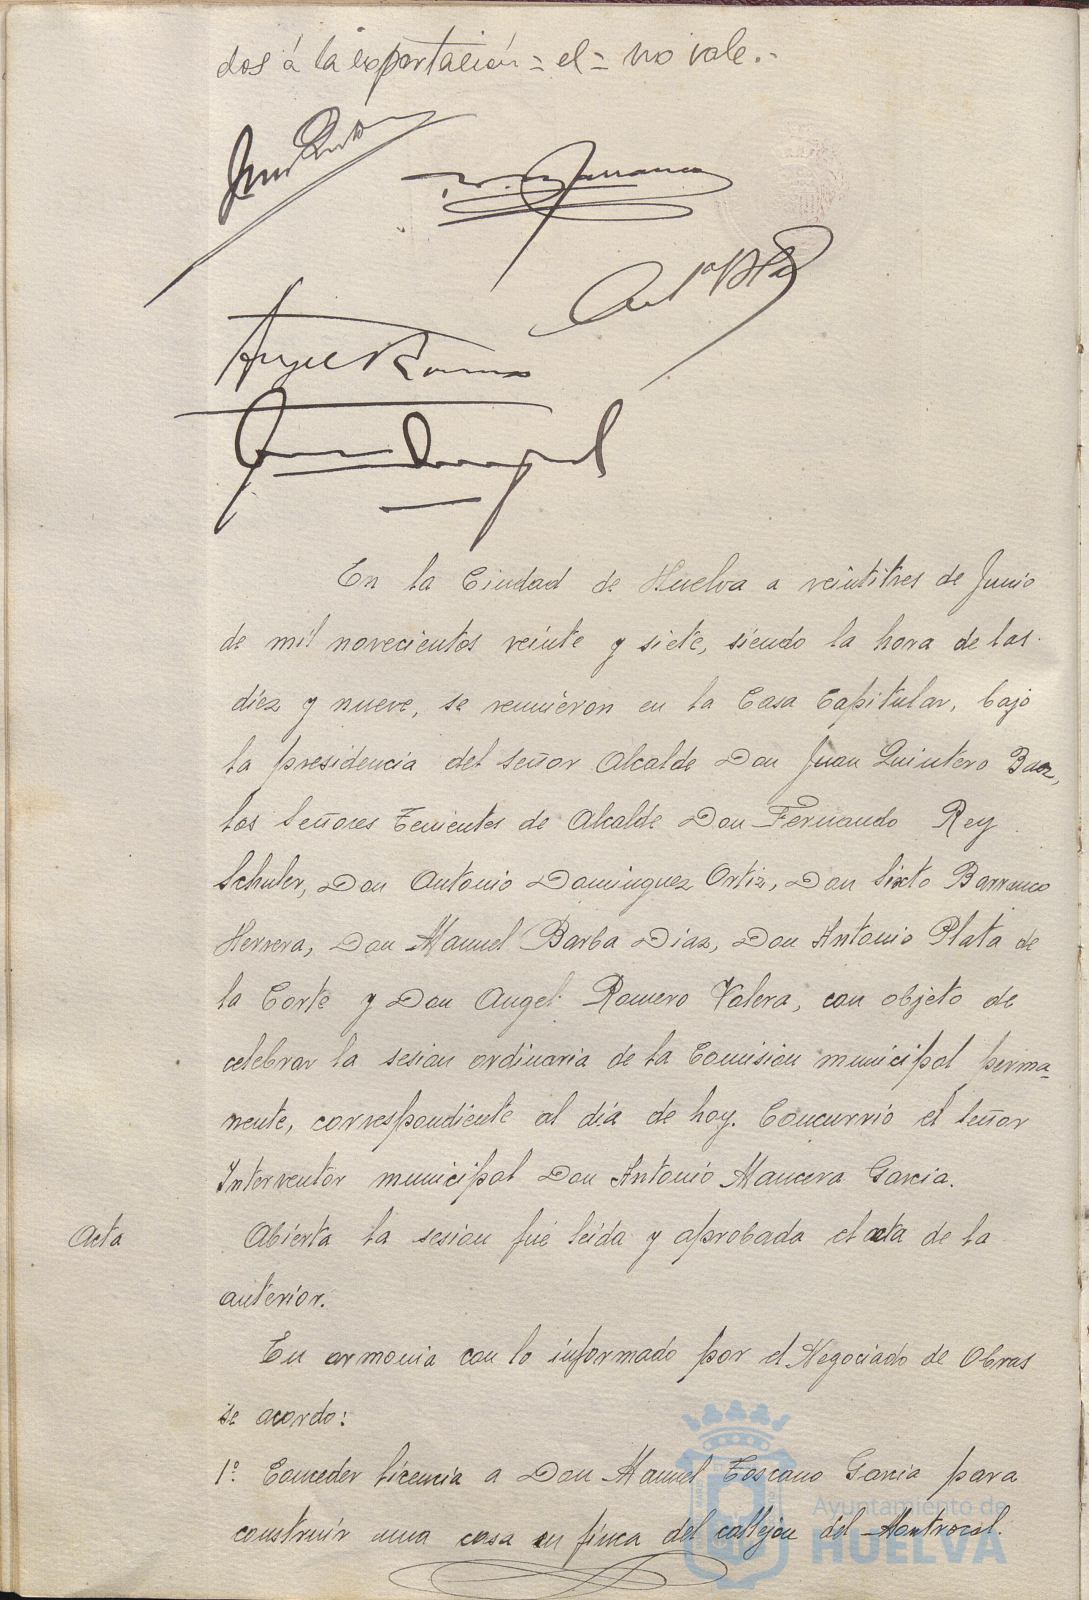 dos á la exportación = el = no vale.-
Angel Romero
En la Ciudad de Huelva a veintitres de Junio
de mil novecientos veinte y siete, siendo la hora de las
diez y nueve, se reunieron en la Casa Capitular, bajo
la presidencia del señor Alcalde Don Juan Quintero Baez,
los Señores Tenientes de Alcalde Don Fernando Rey
Schuler, Don Antonio Dominguez Ortiz, Don Sixto Barranco
Herrera, Don Manuel Barba Diaz, Don Antonio Plata de
la Corte y Don Angel Romero Valera, con objeto de
celebrar la sesion ordinaria de la Comision municipal perma-
nente, correspondiente al día de hoy. Concurrió el Señor
Interventor municipal Don Antonio Mancera Garcia.
Acta Abierta la sesion fué leida y aprobada el acta de la
anterior.
En armonia con lo informado por el Negociado de Obras
se acordo:
1º. Conceder licencia a Don Manuel Toscano Garcia para
construir una casa en finca del callejon del Mantrocal.
Ayuntamiento de
HUELVA